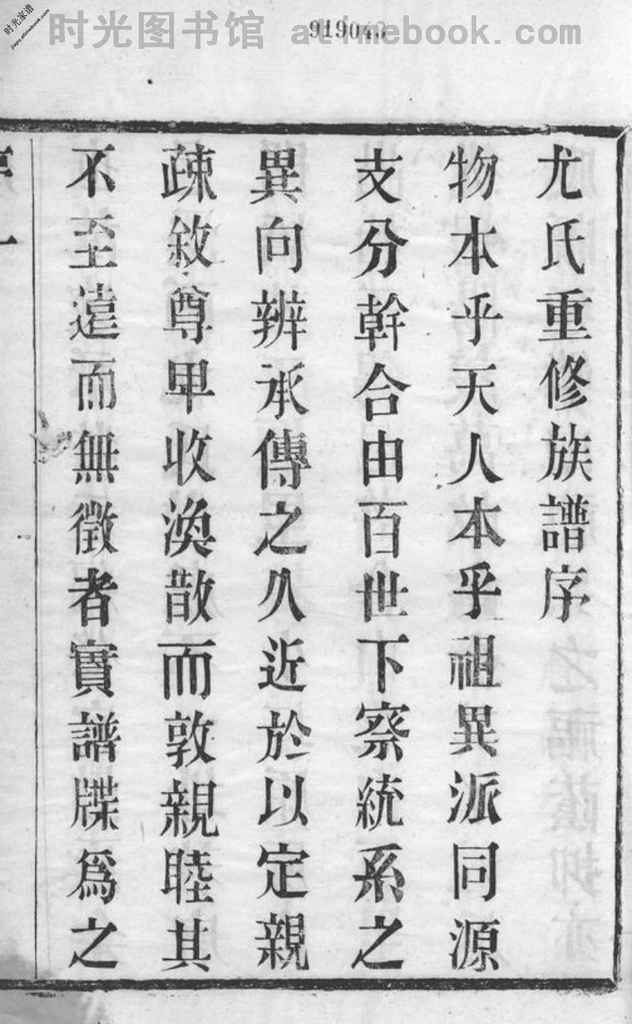 时光图书馆 at1mebook.com
919043
尤氏重修族譜序
物本乎天人本乎祖異派同源
支分幹合由百世下察統系之
異向辨承傳之久近於以定親
疎敘尊卑收渙散而敦親睦其
不至遠而無徵者實譜牒爲之
序 一